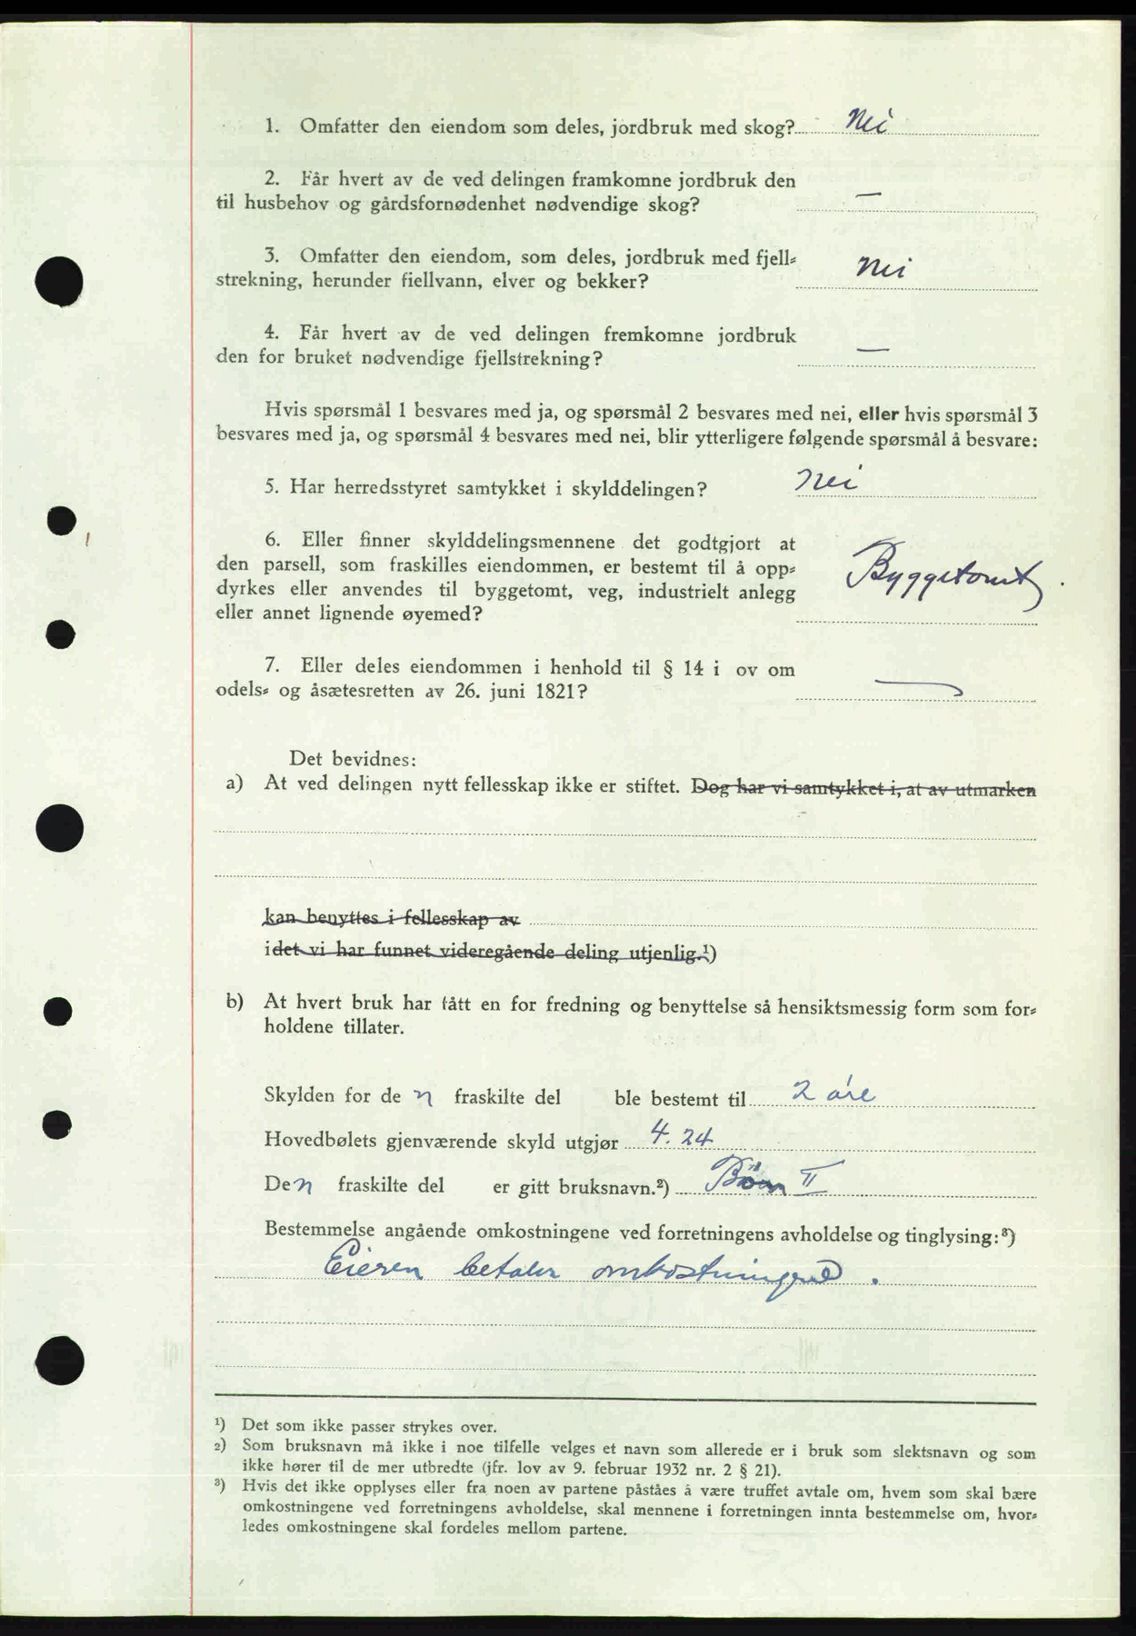 1. Omfatter den eiendom som deles, jordbruk med skog? Nei
2. Får hvert av de ved delingen framkomne jordbruk den
til husbehov og gårdsfornødenhet nødvendige skog? —
3. Omfatter den eiendom, som deles, jordbruk med fjell-
strekning, herunder fiellvann, elver og bekker? Nei
4. Får hvert av de ved delingen fremkomne jordbruk
den for bruket nødvendige fjellstrekning? —
Hvis spørsmål 1 besvares med ja, og spørsmål 2 besvares med nei, eller hvis spørsmål 3
besvares med ja, og spørsmål 4 besvares med nei, blir ytterligere følgende spørsmål å besvare:
5. Har herredsstyret samtykket i skylddelingen? Nei
6. Eller finner skylddelingsmennene det godtgjort at
den parsell, som fraskilles eiendommen, er bestemt til å opp-
dyrkes eller anvendes til byggetomt, veg, industrielt anlegg
eller annet lignende øyemed? Byggetomt
7. Eller deles eiendommen i henhold til § 14 i ov om
odels- og åsætesretten av 26. juni 1821? —
Det bevidnes:
a) At ved delingen nytt fellesskap ikke er stiftet. Dog har vi samtykket i, at av utmarken
kan benyttes i fellesskap av
idet vi har funnet videregående deling utjenlig.¹)
b) At hvert bruk har fått en for fredning og benyttelse så hensiktsmessig form som for-
holdene tillater.
Skylden for de n fraskilte del ble bestemt til 2 øre
Hovedbølets gjenværende skyld utgjør 4.24
Den fraskilte del er gitt bruksnavn.²) II
Bestemmelse angående omkostningene ved forretningens avholdelse og tinglysing:³)
Eieren betaler omkostningene.
¹) Det som ikke passer strykes over.
2) Som bruksnavn må ikke i noe tilfelle velges et navn som allerede er i bruk som slektsnavn og som
ikke hører til de mer utbredte (jfr. lov av 9. februar 1932 nr. 2 § 21).
³) Hvis det ikke opplyses eller fra noen av partene påståes å være truffet avtale om, hvem som skal bære
omkostningene ved forretningens avholdelse, skal mennene i forretningen innta bestemmelse om, hvor-
ledes omkostningene skal fordeles mellom partene.